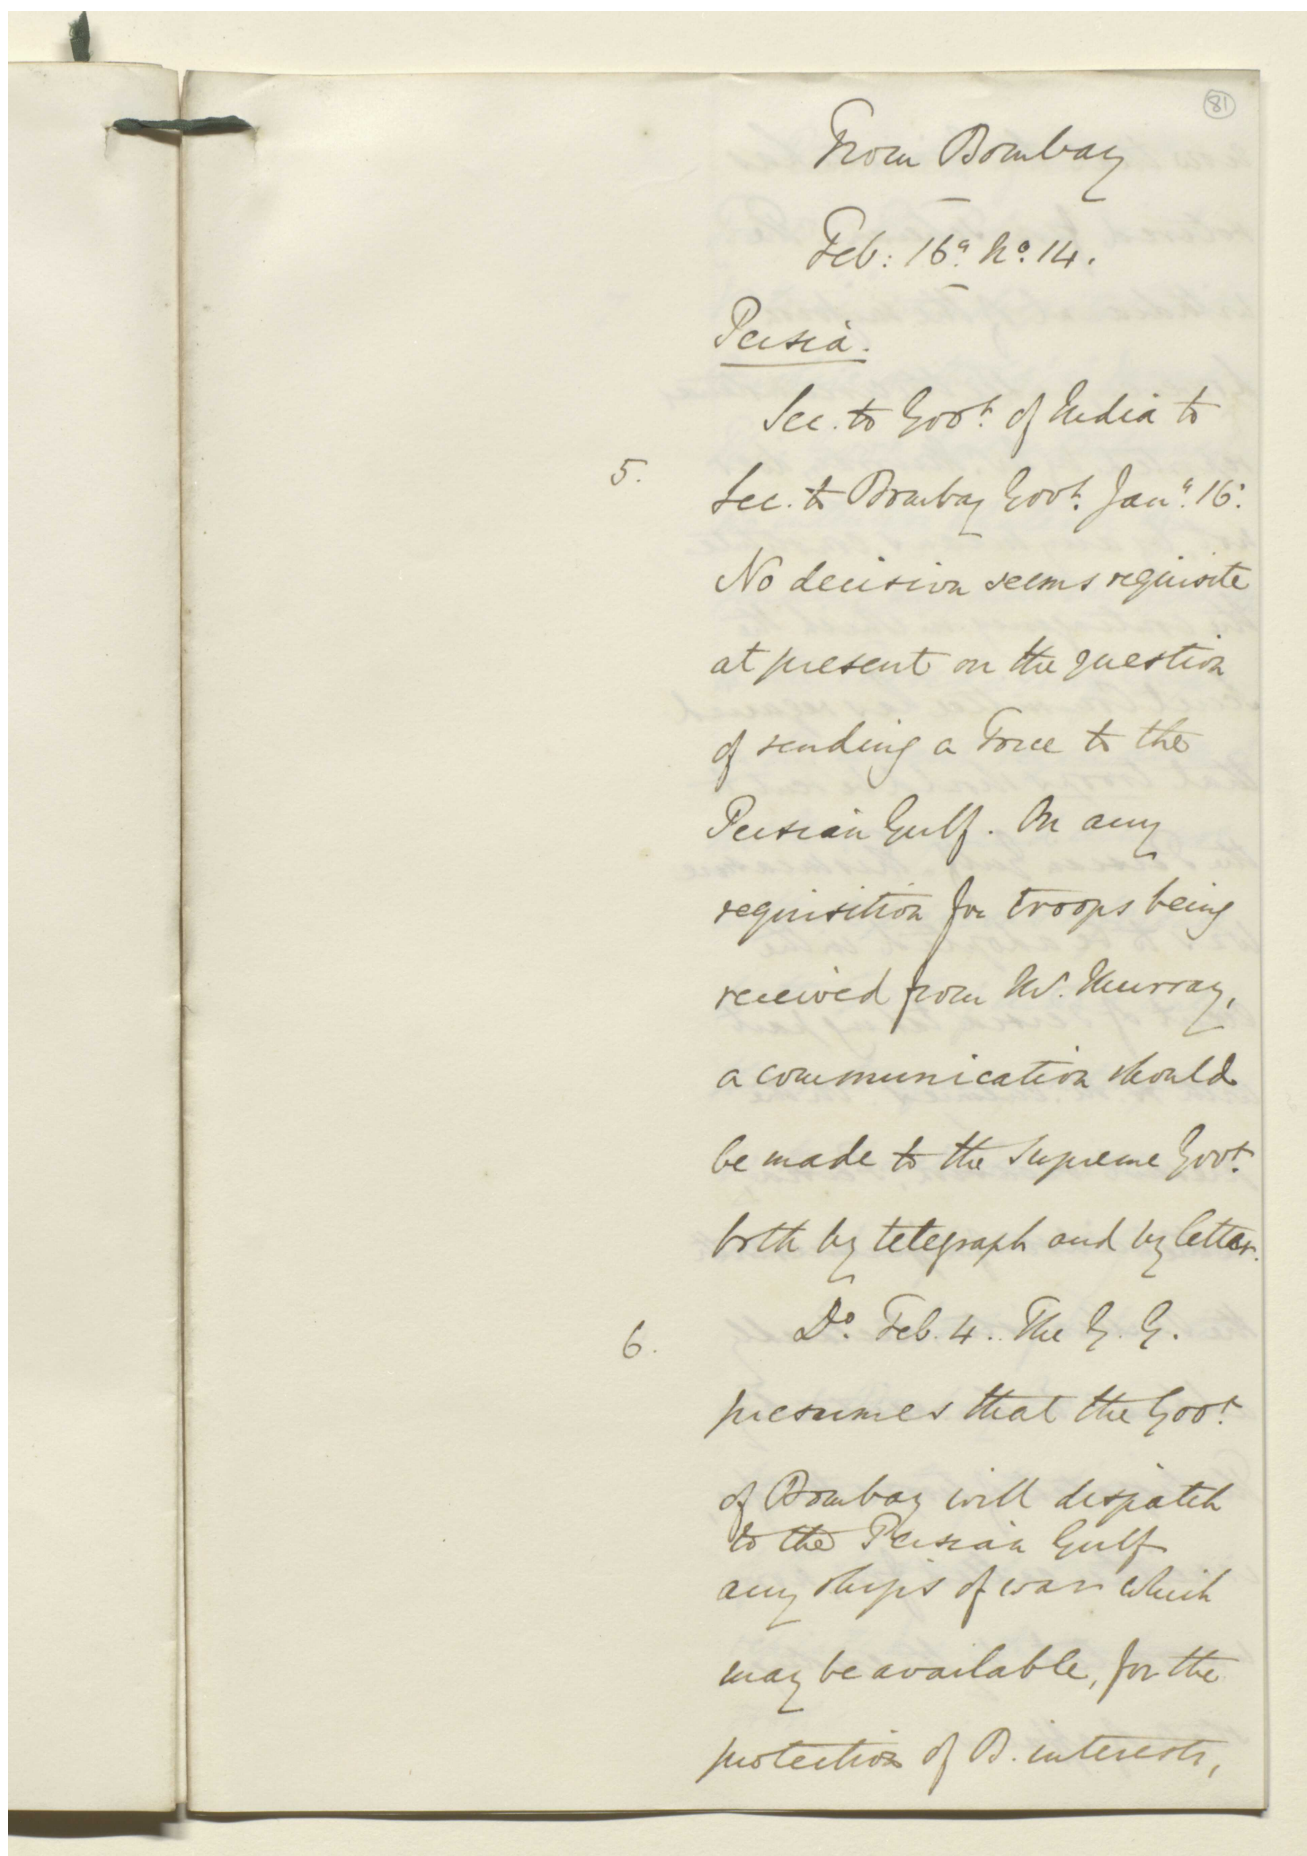 81
From Bombay
Feb: 16. No. 14.
Persia.
Sec. to Govt. of India to
5.
Sec. to Bombay Govt. Jany. 16.
No decision seems requisite
at present on the question
of sending a Force to the
Persian Gulf. On any
requisition for troops being
received from Mr. Murray,
a communication should
be made to the Supreme Govt.
both by telegraph and by letter.
6.
Do. Feb. 4. The G. G.
presumes that the Govt.
of Bombay will despatch
to the Persian Gulf
any ships of war which
may be available, for the
protection of B. interests,